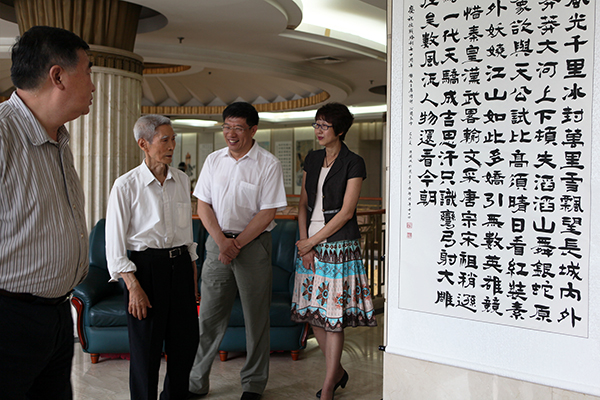 光千里冰封萬里雪飄望長城内外
莽莽大河上下頓失滔滔山舞銀蛇原
象欲與天公試比高須晴日看紅裝素
外妖嬈江山如此多嬌引無數英雄競
惜秦皇漢武畧輸文采唐宗宋祖稍遜
一代天驕成吉思汗只識彎弓射大雕
矣數風流人物還看今朝